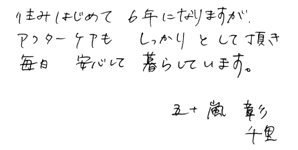 住みはじめて 6年になりますが、
アフターケアも しっかり として頂き
毎日 安心して 暮らしています。
五十嵐 彰
千里